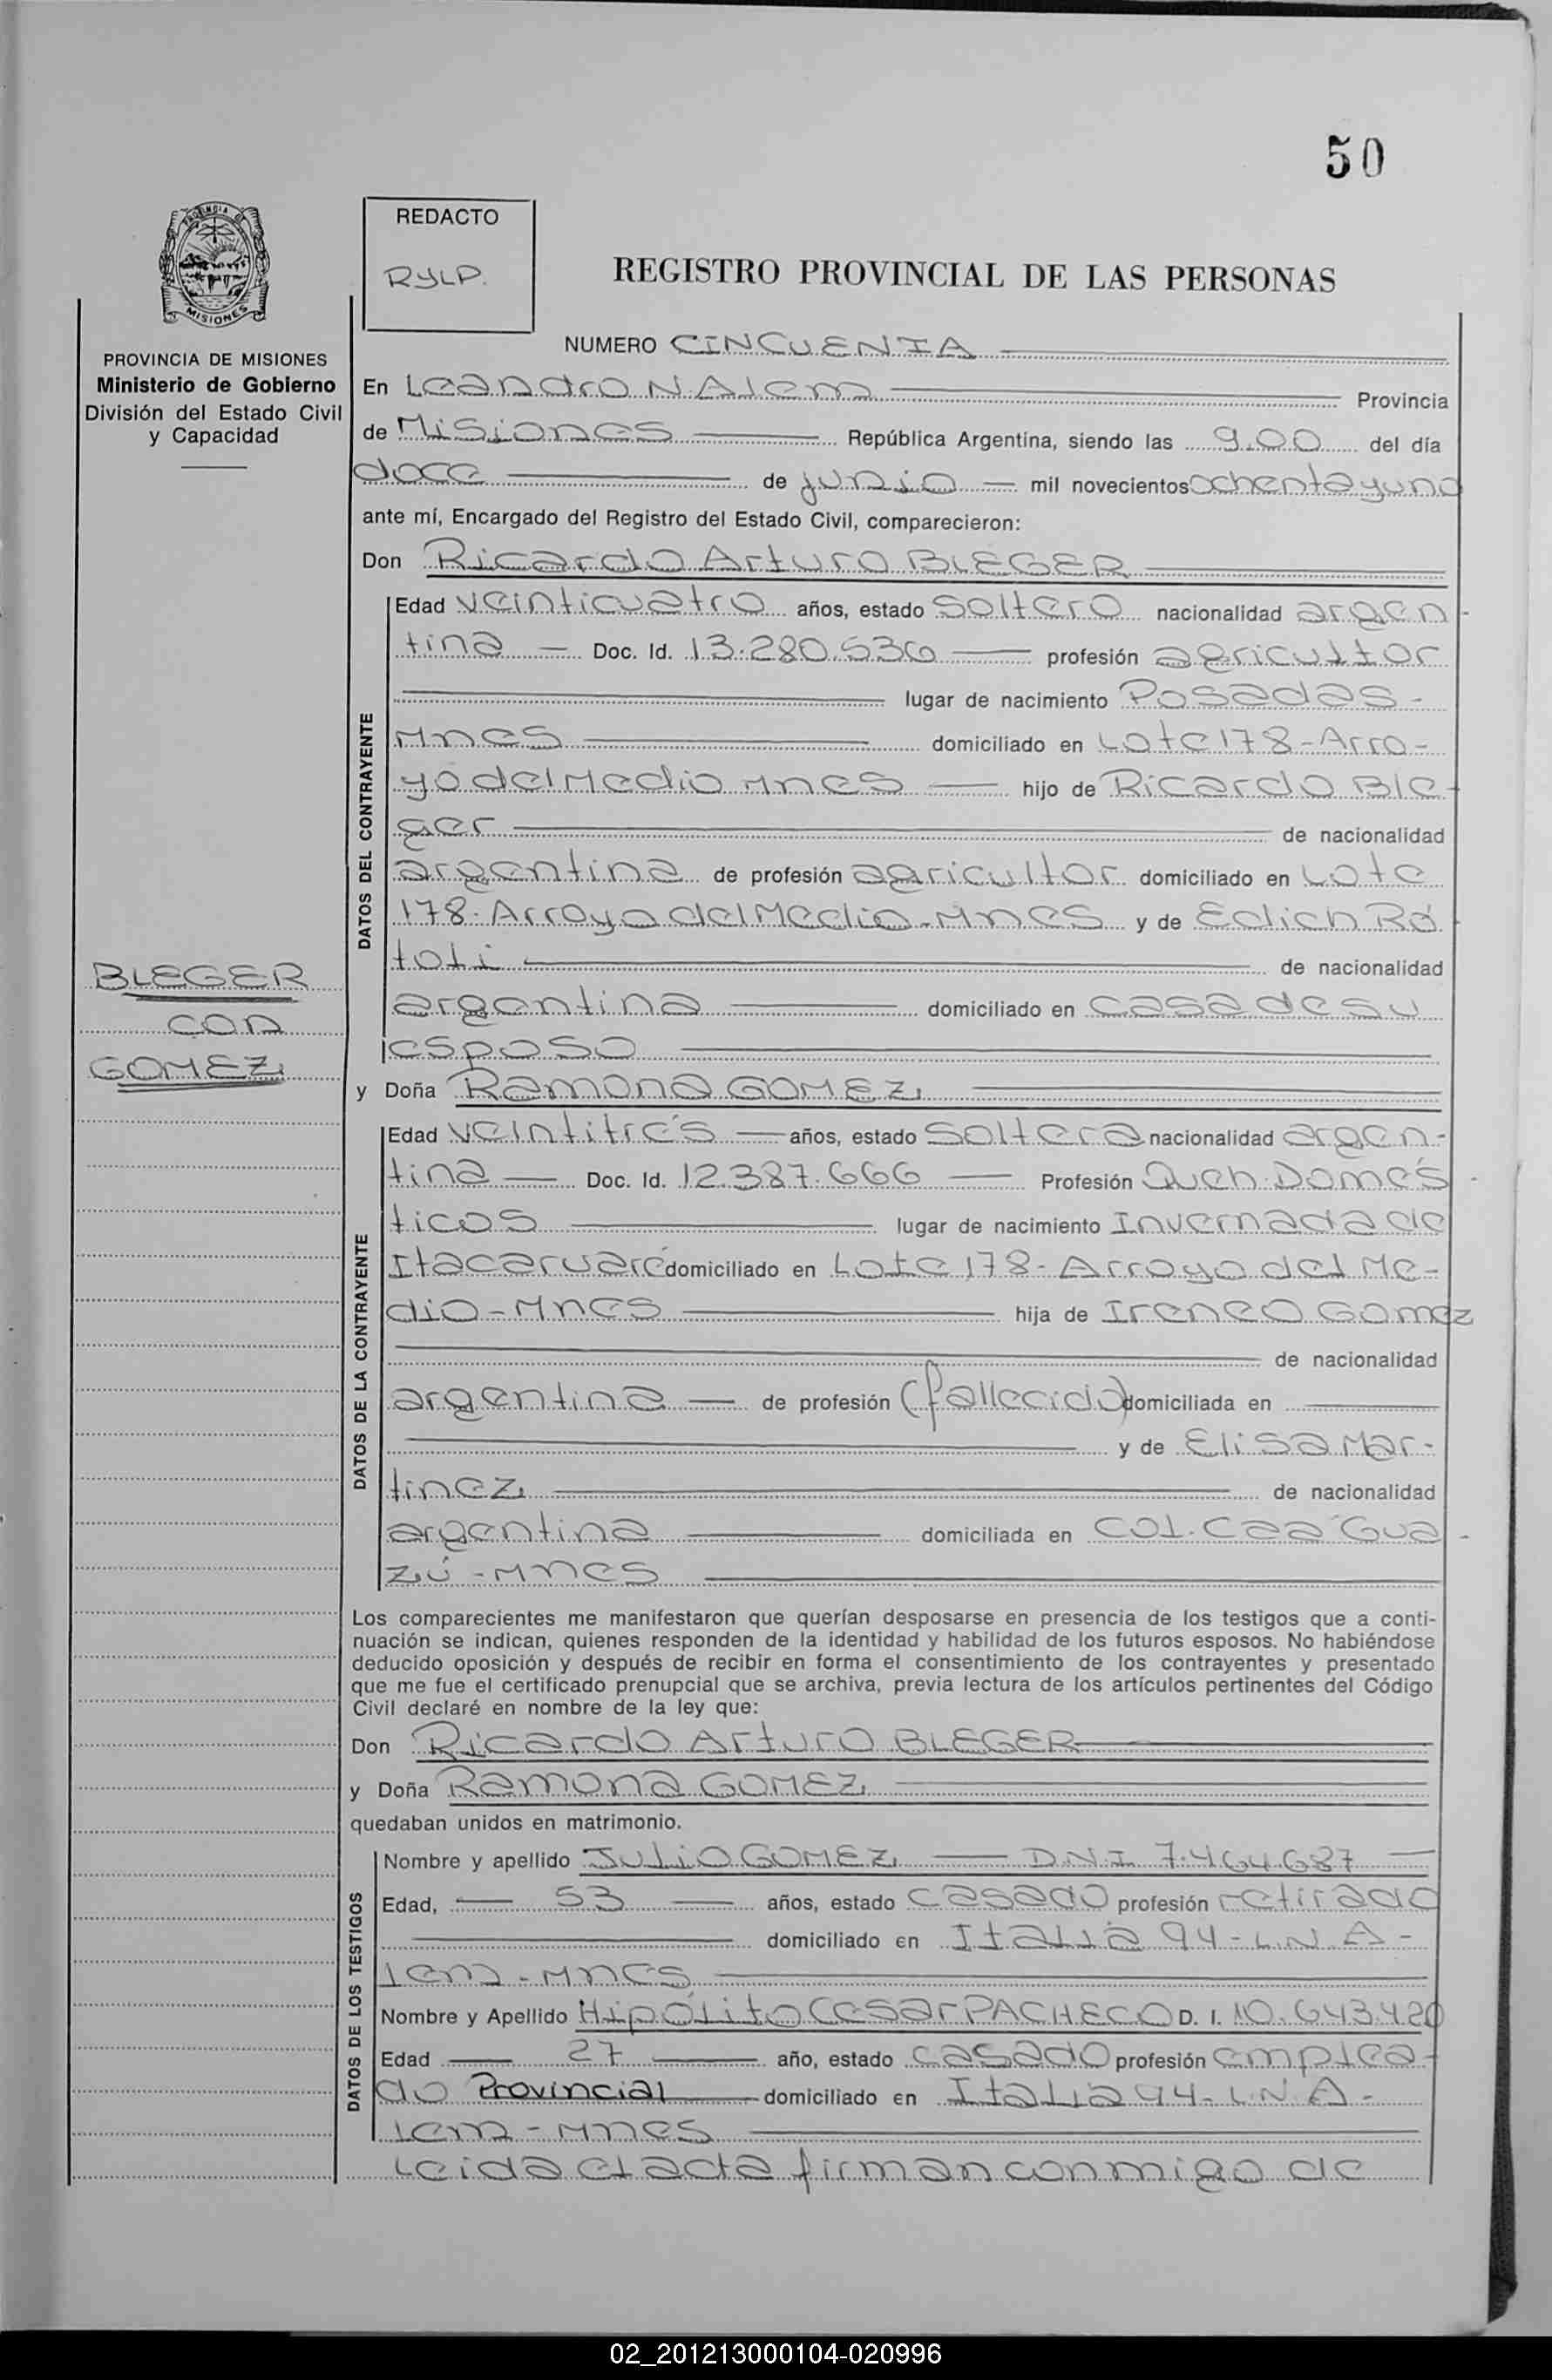 50
PROVINCIA DE MISIONES
REDACTO
RYLP.
REGISTRO PROVINCIAL DE LAS PERSONAS
PROVINCIA DE MISIONES
Ministerio de Gobierno
División del Estado Civil
y Capacidad
NUMERO CINCUENTA
En Leandro N. Alem Provincia
de Misiones República Argentina, siendo las 9.00 del día
doce de junio mil novecientos ochenta y uno
ante mí, Encargado del Registro del Estado Civil, comparecieron:
Don Ricardo Arturo BLEGER
DATOS DEL CONTRAYENTE
Edad veinticuatro años, estado soltero nacionalidad argen-
tina Doc. Id. 13.280.536 profesión agricultor
lugar de nacimiento Posadas -
Mnes domiciliado en Lote 178 - Arro-
yo del Medio Mnes hijo de Ricardo Ble-
ger de nacionalidad
argentina de profesión agricultor domiciliado en Lote
178 - Arroyo del Medio - Mnes y de Edich
de nacionalidad
argentina domiciliado en casa de su
esposo
BLEGER
con
GOMEZ
y Doña Ramona GOMEZ
DATOS DE LA CONTRAYENTE
Edad veintitrés años, estado soltera nacionalidad argen-
tina Doc. Id. 12.387.666 Profesión Queh. Domés
ticos lugar de nacimiento Invernada de
Itacaruaré domiciliado en Lote 178 - Arroyo del Me-
dio - Mnes hija de Ireneo Gomez
de nacionalidad
argentina de profesión (fallecido) domiciliada en
y de Elisa Mar-
tinez de nacionalidad
argentina domiciliada en Col. Caá Gua-
zú - Mnes
Los comparecientes me manifestaron que querían desposarse en presencia de los testigos que a conti-
nuación se indican, quienes responden de la identidad y habilidad de los futuros esposos. No habiéndose
deducido oposición y después de recibir en forma el consentimiento de los contrayentes y presentado
que me fue el certificado prenupcial que se archiva, previa lectura de los artículos pertinentes del Código
Civil declaré en nombre de la ley que:
Don Ricardo Arturo BLEGER
y Doña Ramona GOMEZ
quedaban unidos en matrimonio.
DATOS DE LOS TESTIGOS
Nombre y apellido Julio GOMEZ D.N.I. 7.464.687
Edad, 53 años, estado casado profesión retirado
domiciliado en Italia 94 - L.N. A-
lem - Mnes
Nombre y Apellido Hipólito Cesar PACHECO D. I. 10.643.420
Edad 27 año, estado casado profesión emplea-
do Provincial domiciliado en Italia 94 - L.N. A-
lem - Mnes
Leida el acta firman conmigo de
02_201213000104-020996